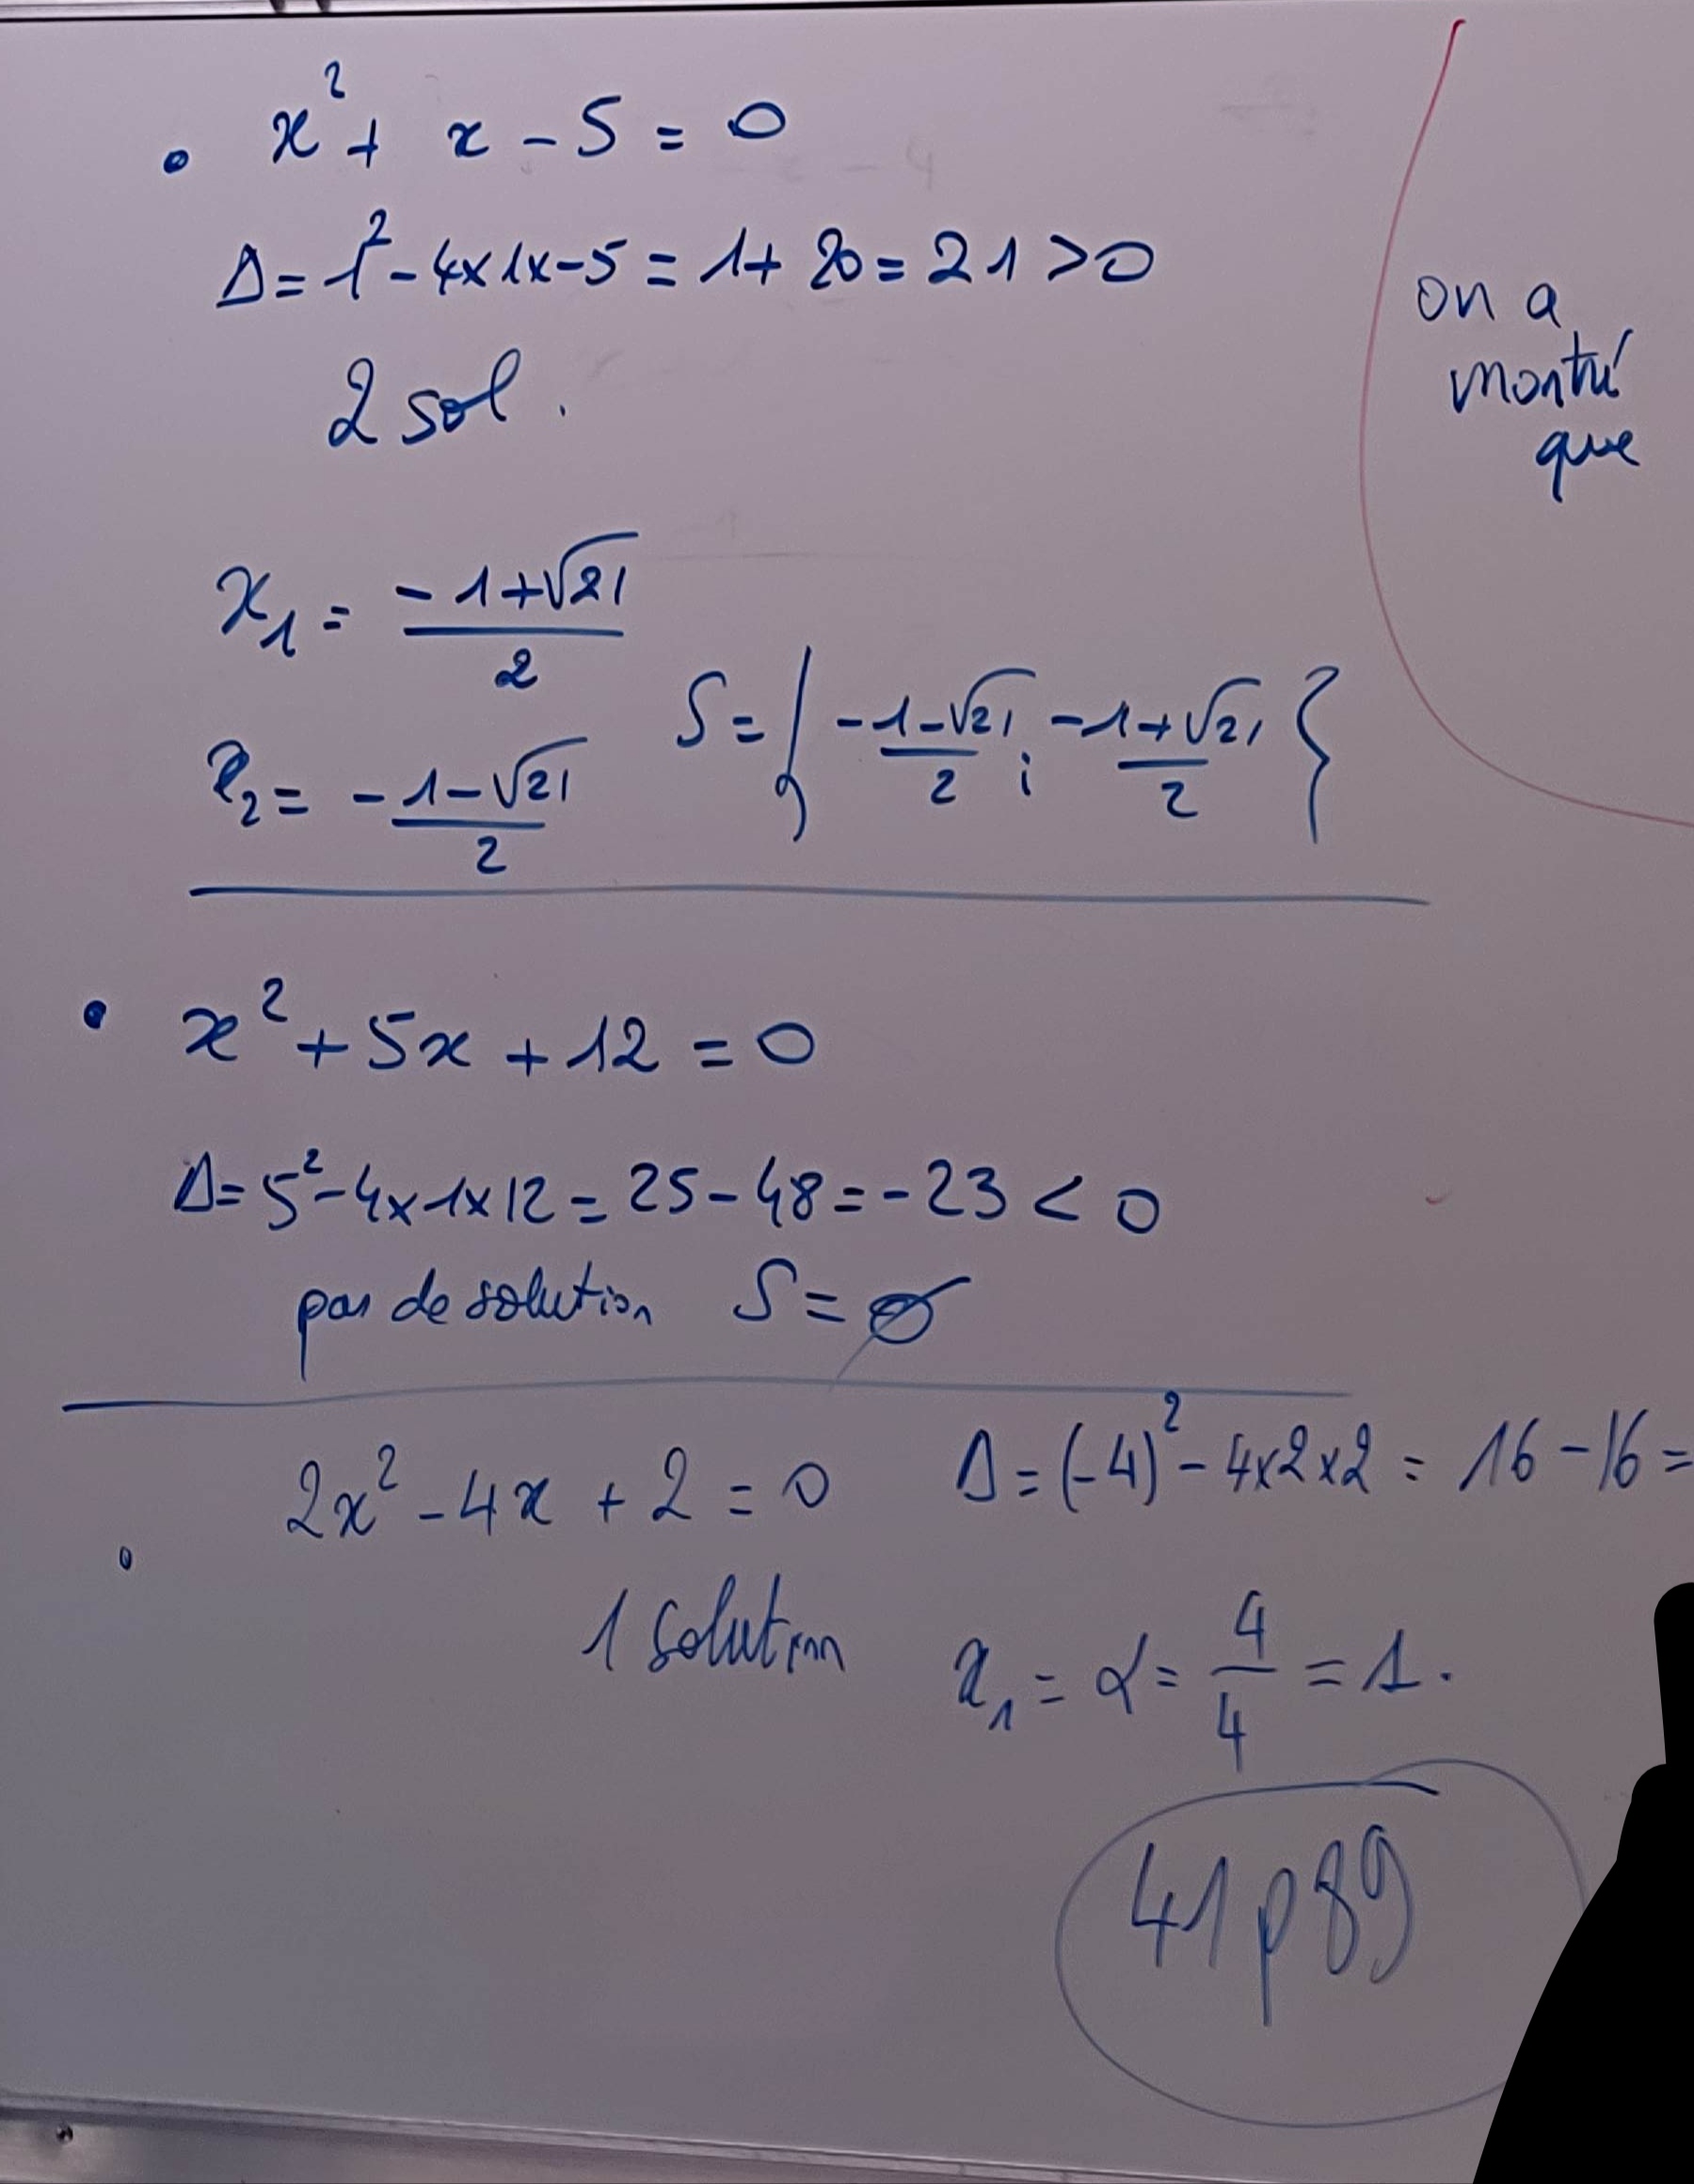 • x² + x - 5 = 0
Δ = 1² - 4x1x-5 = 1 + 20 = 21 > 0
2 sol.
on a
montré
que
x₁ = (-1+√21)/2
x₂ = (-1-√21)/2
S = { (-1-√21)/2 ; (-1+√21)/2 }
• x² + 5x + 12 = 0
Δ = 5² - 4x1x12 = 25 - 48 = -23 < 0
pas de solution S = ∅
• 2x² - 4x + 2 = 0 Δ = (-4)² - 4x2x2 = 16 - 16 =
1 solution x₁ = α = 4/4 = 1.
41 p 89